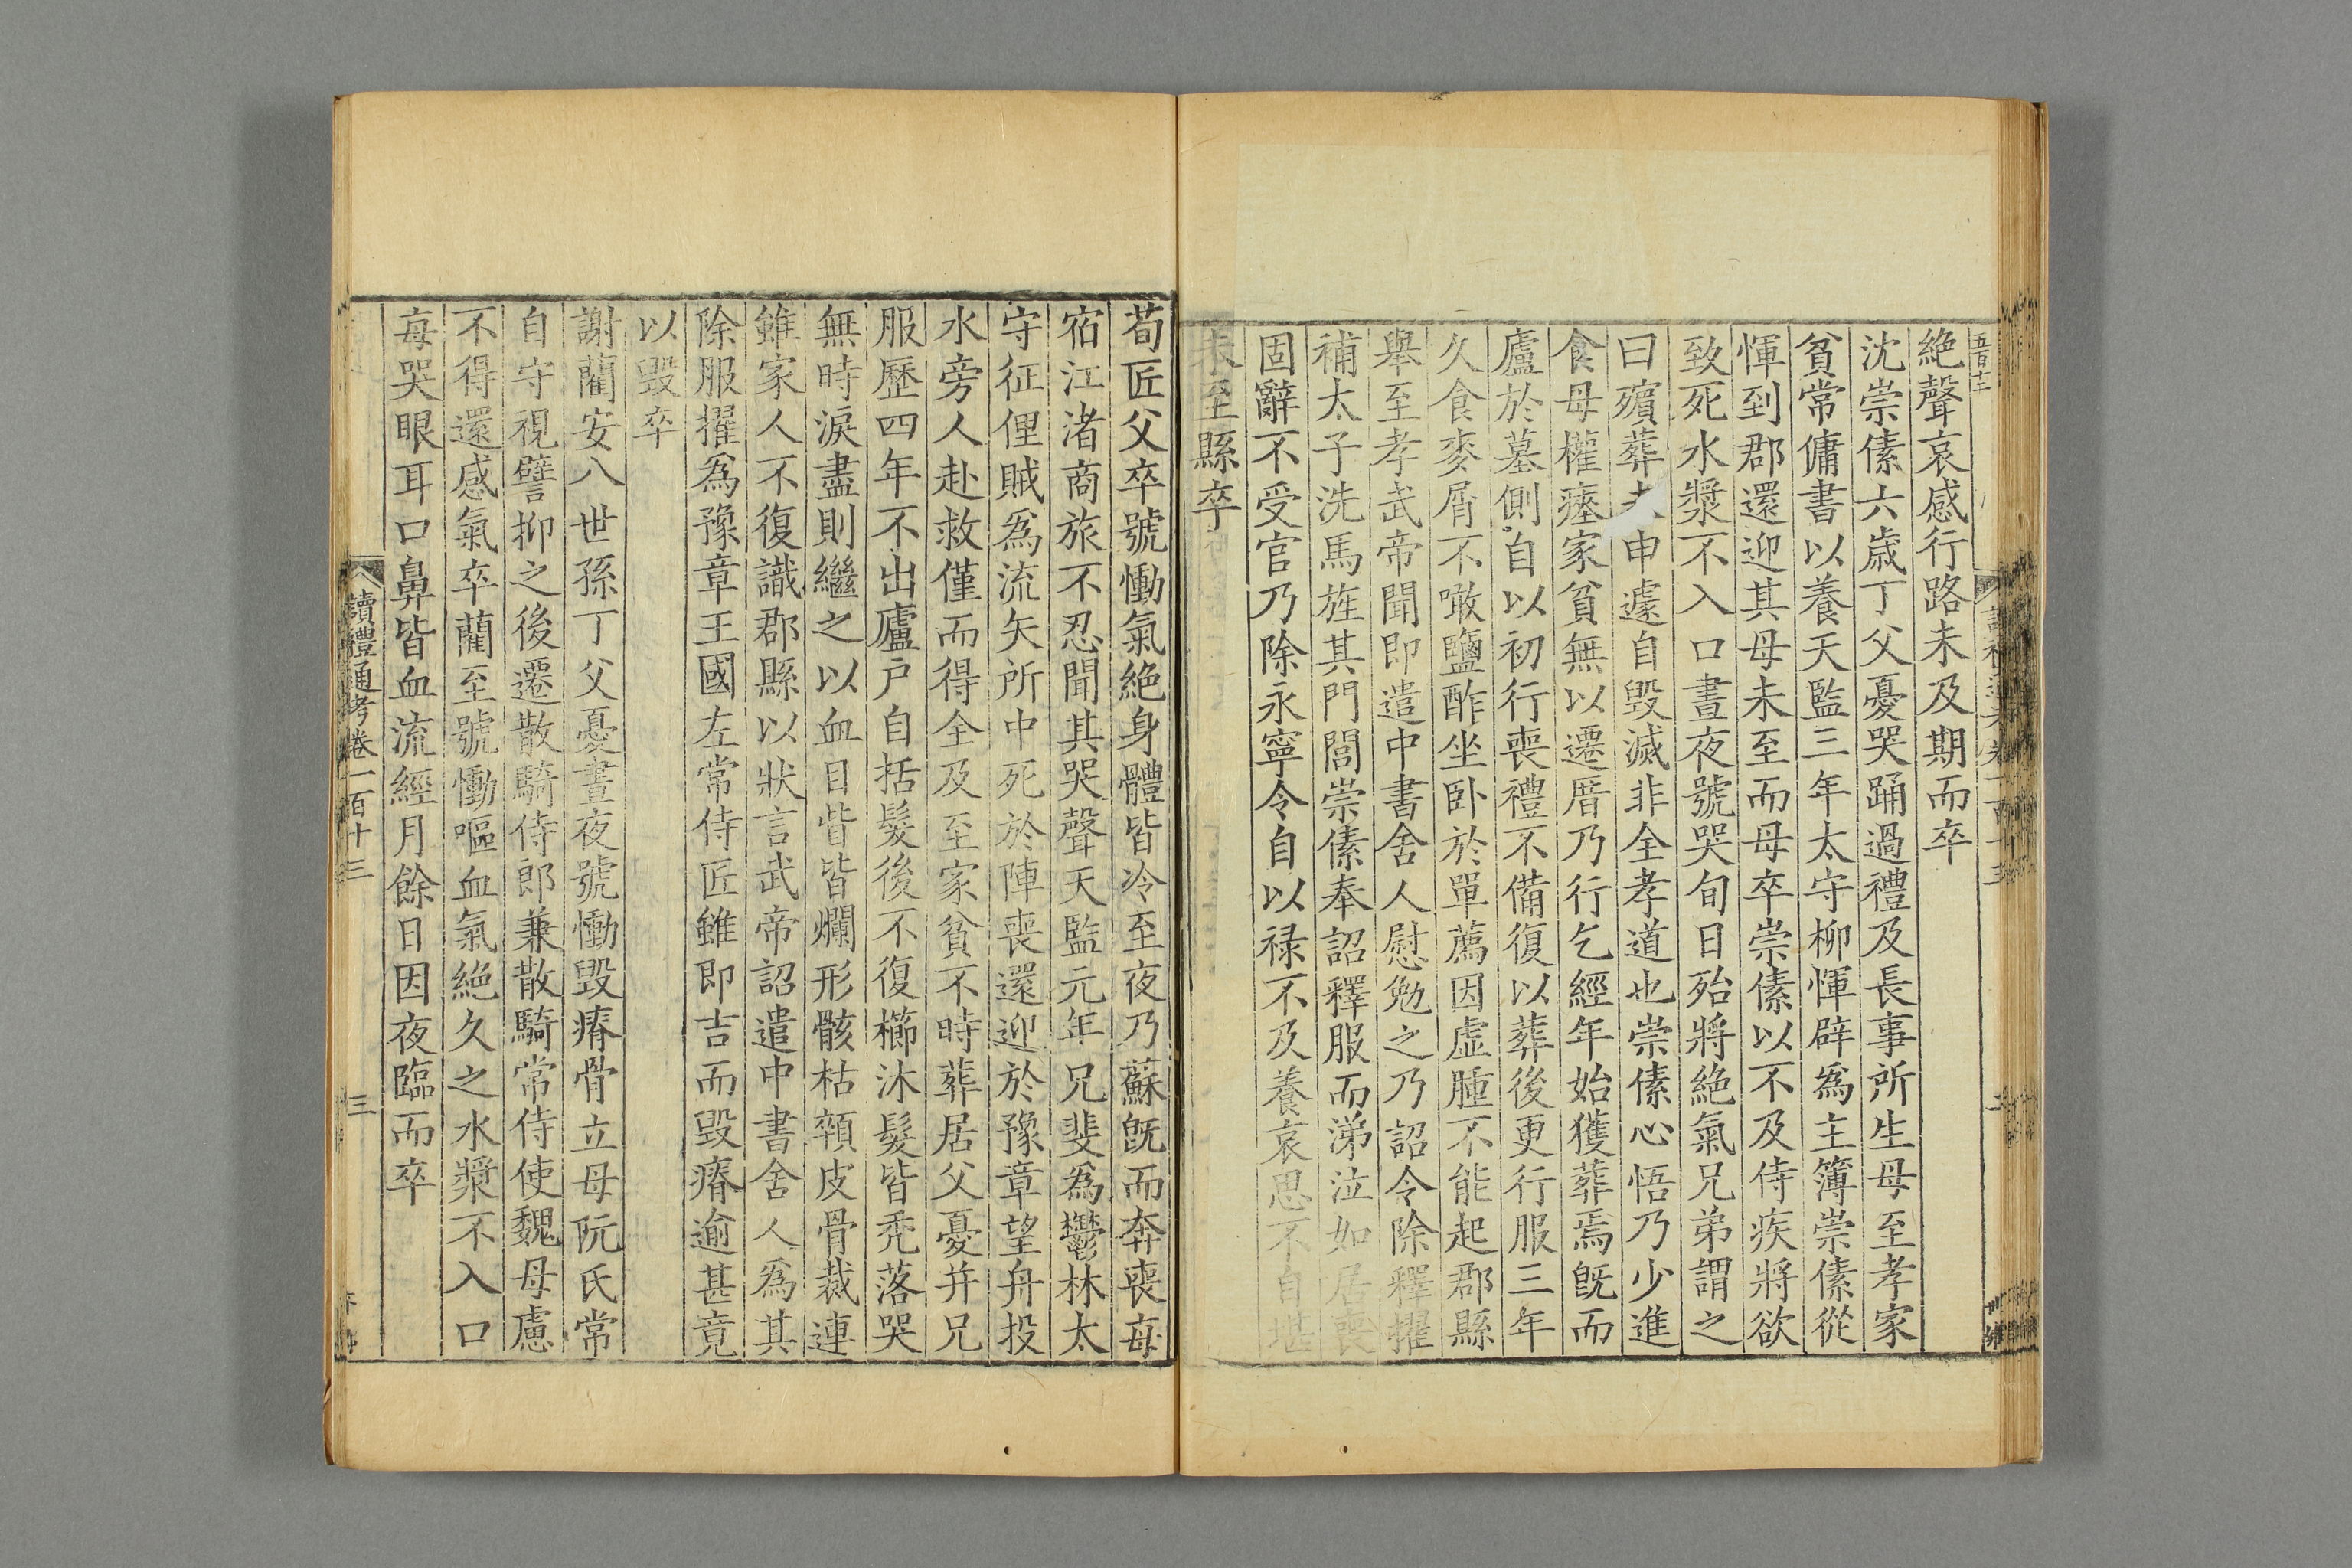 五百十二
絶聲哀感行路未及期而卒
沈崇傃六歲丁父憂哭踊過禮及長事所生母至孝家
貧常傭書以養天監三年太守柳惲辟爲主簿崇傃從
惲到郡還迎其母未至而母卒崇傃以不及侍疾將欲
致死水漿不入口晝夜號哭旬日殆將絶氣兄弟謂之
曰殯葬未申遽自毀滅非全孝道也崇傃心悟乃少進
食母權瘞家貧無以遷厝乃行乞經年始獲葬焉旣而
廬於墓側自以初行喪禮不備復以葬後更行服三年
久食麥屑不噉鹽酢坐卧於單薦因虛腫不能起郡縣
舉至孝武帝聞即遣中書舍人慰勉之乃詔令除釋擢
補太子洗馬旌其門閭崇傃奉詔釋服而涕泣如居喪
固辭不受官乃除永寧令自以祿不及養哀思不自堪
未至縣卒
荀匠父卒號慟氣絶身體皆冷至夜乃蘇旣而奔喪每
宿江渚商旅不忍聞其哭聲天監元年兄斐爲鬱林太
守征俚賊爲流矢所中死於陣喪還迎於豫章望舟投
水旁人赴救僅而得全及至家貧不時葬居父憂并兄
服歷四年不出廬户自括髮後不復櫛沐髮皆秃落哭
無時淚盡則繼之以血目眥皆爛形骸枯顇皮骨裁連
雖家人不復識郡縣以狀言武帝詔遣中書舍人爲其
除服擢爲豫章王國左常侍匠雖即吉而毀瘠逾甚竟
以毀卒
謝藺安八世孫丁父憂晝夜號慟毀瘠骨立母阮氏常
自守視譬抑之後遷散騎侍郎兼散騎常侍使魏母慮
不得還感氣卒藺至號慟嘔血氣絶久之水漿不入口
每哭眼耳口鼻皆血流經月餘日因夜臨而卒
讀禮通考卷一百十三
三